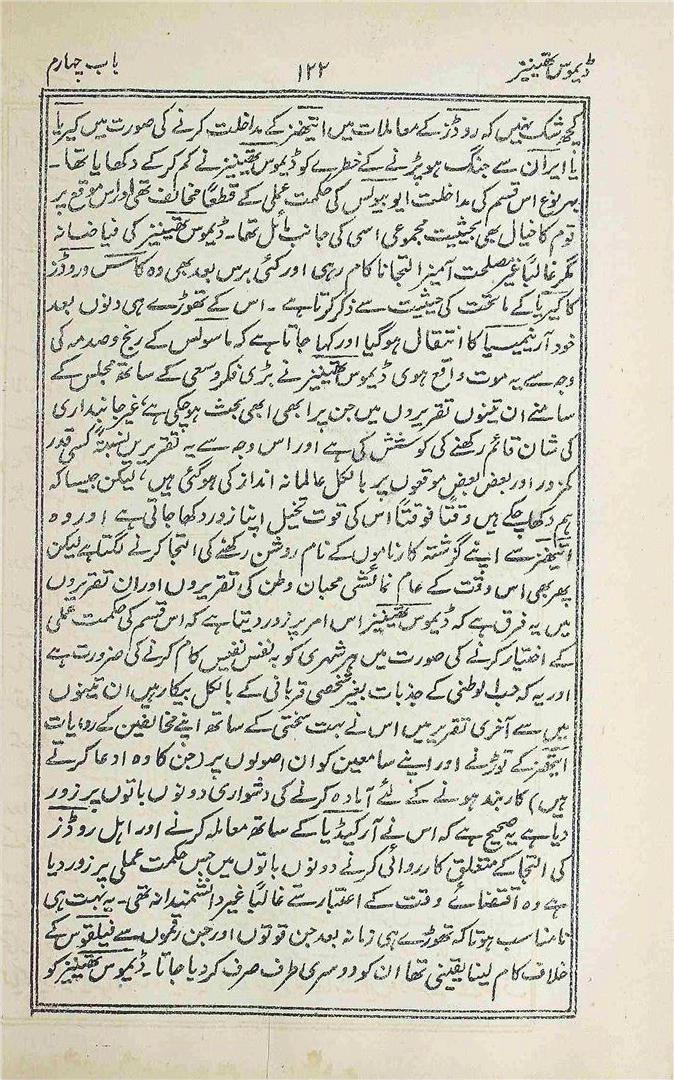 ڈیموس تھینیز ۱۲۲ باب چہارم
کچھ شک نہیں کہ روڈز کے معاملات میں ایتھنز کے مداخلت کرنے کی صورت میں کیریا
یا ایران سے جنگ ہو پڑنے کے خطرے کو ڈیموس تھینیز نے کم کر کے دکھایا تھا۔
بہر نوع اس قسم کی مداخلت ایوبیولس کی حکمت عملی کے قطعاً مخالف تھی اور اس موقع پر
قوم کا خیال بھی بحیثیت مجموعی اسی کی جانب مائل تھا۔ ڈیموس تھینیز کی فیاضانہ
مگر غالباً غیر مصلحت آمیز التجا ناکام رہی اور کئی برس بعد بھی وہ کاس و روڈز
کا کیریا کے ماتحت کی حیثیت سے ذکر کرتا ہے۔ اس کے تھوڑے ہی دنوں بعد
خود آرٹیمیسیا کا انتقال ہو گیا اور کہا جاتا ہے کہ ماسولس کے رنج و صدمہ کی
وجہ سے یہ موت واقع ہوی ڈیموس تھینیز نے بڑی فکر و سعی کے ساتھ مجلس کے
سامنے ان تینوں تقریروں میں جن پر ابھی ابھی بحث ہو چکی ہے، غیر جانبداری
کی شان قائم رکھنے کی کوشش کی ہے اور اس وجہ سے یہ تقریریں نسبتہً کسی قدر
کمزور اور بعض بعض موقعوں پر بالکل عالمانہ انداز کی ہو گئی ہیں، لیکن جیسا کہ
ہم دکھا چکے ہیں وقتاً فوقتاً اس کی قوت تخیل اپنا زور دکھا جاتی ہے اور وہ
ایتھنز سے اپنے گزشتہ کارناموں کے نام روشن رکھنے کی التجا کرنے لگتا ہے لیکن
پھر بھی اس وقت کے عام نمائشی محبان وطن کی تقریروں اور ان تقریروں
میں یہ فرق ہے کہ ڈیموس تھینیز اس امر پر زور دیتا ہے کہ اس قسم کی حکمت عملی
کے اختیار کرنے کی صورت میں ہر شہری کو بہ نفس نفیس کام کرنے کی ضرورت ہے
اور یہ کہ حب الوطنی کے جذبات بغیر شخصی قربانی کے بالکل بیکار ہیں ان تینوں
میں سے آخری تقریر میں اس نے بہت سختی کے ساتھ اپنے مخالفین کے روایات
ایتھنز کے توڑنے اور اپنے سامعین کو ان اصولوں پر (جن کا وہ ادعا کرتے
ہیں) کاربند ہونے کے لئے آمادہ کرنے کی دشواری دونوں باتوں پر زور
دیا ہے یہ صحیح ہے کہ اس نے آرکیڈیا کے ساتھ معاملہ کرنے اور اہل روڈز
کی التجا کے متعلق کارروائی کرنے دونوں باتوں میں جس حکمت عملی پر زور دیا
ہے وہ اقتضائے وقت کے اعتبار سے غالباً غیر دانشمندانہ تھی۔ یہ بہت ہی
نامناسب ہوتا کہ تھوڑے ہی زمانہ بعد جن قوتوں اور جن رقموں سے فیلقوس کے
خلاف کام لینا یقینی تھا ان کو دوسری طرف صرف کر دیا جاتا۔ ڈیموس تھینیز کو